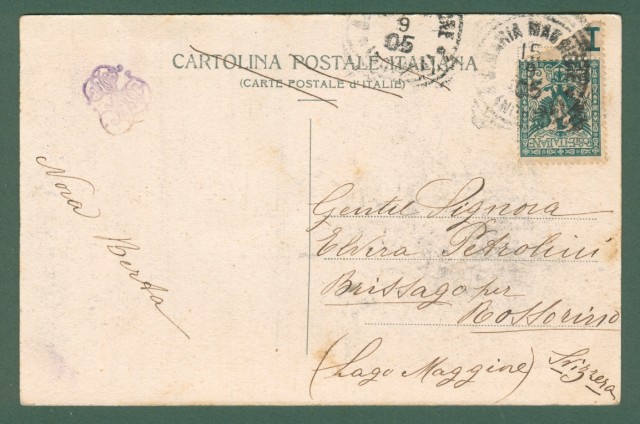 CARTOLINA POSTALE ITALIANA
(CARTE POSTALE d'ITALIE)
9
05
15
05
Nora Berta
Gentil Signora
Elvira Petrolini
Brissago per
Rossorino
(Lago Maggiore) Svizzera